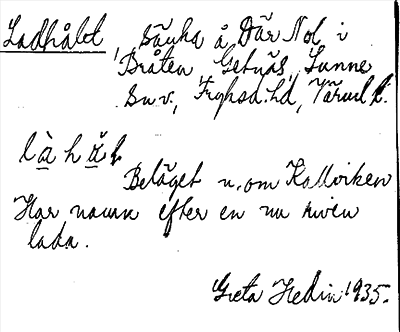 Ladhålt, Sänka å Där Nol i
Bråten Getnäs, Sunne
sn., Fryksd. hd, Värml l.
làhǻlt
Beläget n. om Kollviken
Har namn efter en nu riven
lada.
Greta Hedin 1935.